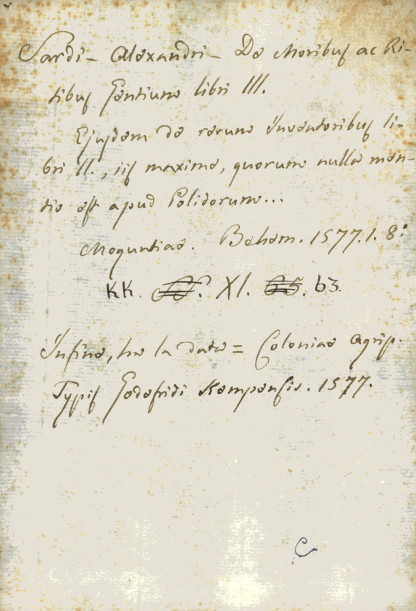 Sardi- Alexandri- De Moribus ac Ri-
tibus Gentium libri III.
Ejusdem de rerum Inventoribus li-
bri II., iis maxime, quorum nulla men-
tio est apud Polidorum...
Moguntiae. Behem. 1577. 1. 8º
KK. XI. 63.
Infine, ha la data= Coloniae Agrip.
Typis Godefridi Kempensis. 1577.
C